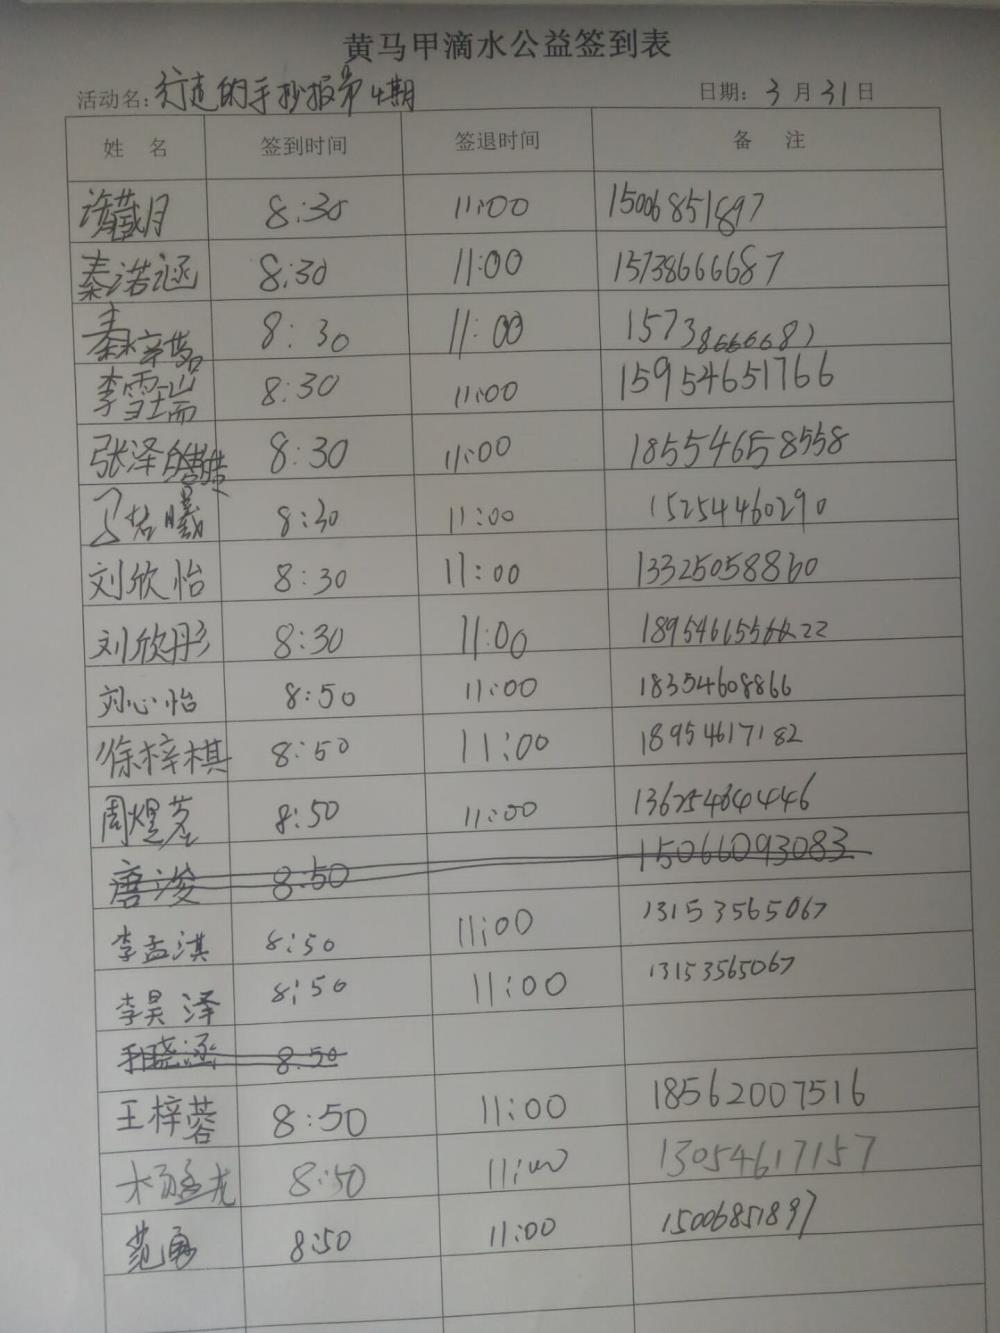 黄马甲滴水公益签到表
活动名: 行走的手抄报第4期 日期: 3月31日
姓 名 签到时间 签退时间 备 注
许藏月 8:30 11:00 15006851897
秦诺涵 8:30 11:00 15738666687
秦梓茗 8:30 11:00 15738666687
李雪瑞 8:30 11:00 15954651766
张泽 8:30 11:00 18554658558
若曦 8:30 11:00 15254460290
刘欣怡 8:30 11:00 13325058860
刘欣彤 8:30 11:00
刘心怡 8:50 11:00 18354608866
徐梓棋 8:50 11:00 18954617182
周煜茗 8:50 11:00 13625464446
唐浚 8:50 15066093083
李孟淇 8:50 11:00 13153565067
李昊泽 8:50 11:00 13153565067
晓涵 8:50
王梓蓉 8:50 11:00 18562007516
杨孟龙 8:50 11:00 13054617157
范勇 8:50 11:00 15006851897